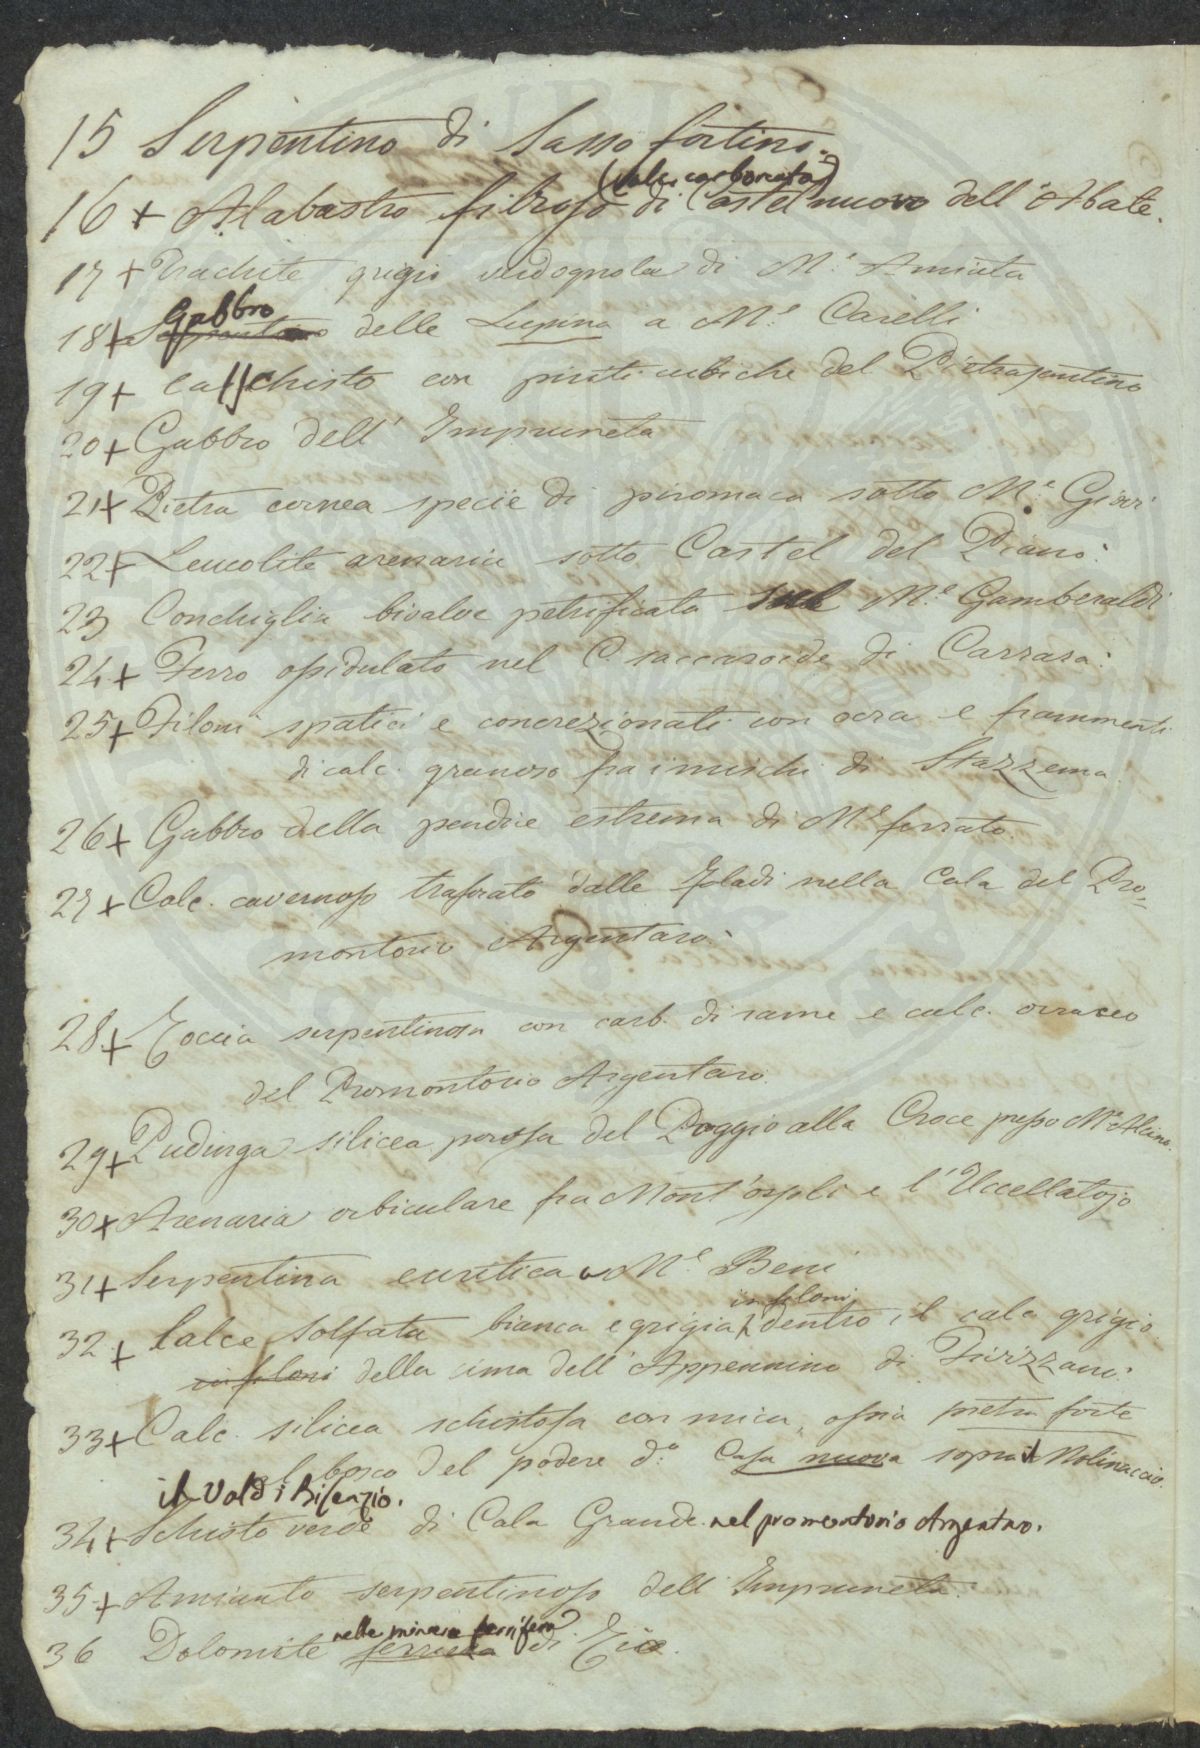 15 Serpentino di Sasso fortino.
(calce carbonata)
16 + Alabastro fibroso di Castelnuovo dell'Abate.
17 + Trachite grigio verdognola di M.e Amiata
Gabbro
18 + Serpentino delle Lupina a M.e Carelli
19 + Calschisto con piriti cubiche del Pietrasantino
20 + Gabbro dell' Impruneta
21 + Pietra cornea specie di piromaca sotto M.e Giovi
22 + Leucolite arenaria sotto Castel del Piano.
23 Conchiglia bivalve petrificata sul M.e Gamberaldi
24 + Ferro ossidulato nel C. saccaroide di Carrara.
25 + Filoni spatici e concrezionati con ocra e frammenti
di calc. granoso fra i mischi di Stazzema
26 + Gabbro della pendice estrema di M.e ferrato.
27 + Calc. cavernoso traforato dalle foladi nella Cala del Pro=
montorio Argentaro.
28 + Roccia serpentinosa con carb. di rame e calc. ocraceo
del Promontorio Argentaro.
29 + Pudinga silicea porosa del Poggio alla Croce presso M.e Alcino.
30 + Arenaria orbiculare fra Mont'orsoli e l'Uccellatojo
31 + Serpentina euritica a M.e Beni
in filoni
32 + Calce solfata bianca e grigia dentro il calc grigio
in filoni della cima dell' Appennino di Fivizzano.
33 + Calc. silicea schistosa con mica, ossia pietra forte
bosco del podere d.o Casa nuova sopra il Molinaccio.
il Val di Bisenzio.
34 + Schisto verde di Cala Grande nel promontorio Argentaro.
35 + Amianto serpentinoso dell' Impruneta.
nelle miniera ferrifera
36 Dolomite ferrifera di Rio.